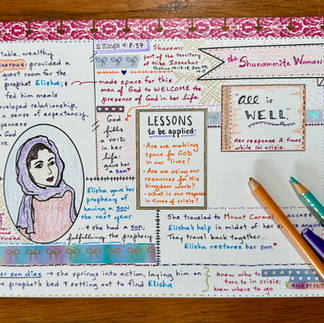 the Shunammite Woman
II Kings 4:8-37
Shunem:
part of the
territory of
tribe Issachar
Joshua 19:17-18,
table, wealthy
generous provided a
guest room for the
prophet Elisha;
fed him meals
developed relationship,
a sense of expectancy,
openness
God
made space for this
man of God to WELCOME the
presence of God in her life.
God
fills
a void
in her
life:
gave
her a
son
LESSONS
to be applied:
Are we making
space for God
in our lives?
Are we using
our resources for
His Kingdom
work?
What is our response
in times of crisis?
all is
WELL
Her response 2 times
while IN CRISIS.
Elisha gave her
prophecy of
having a son
the next year
she had a son,
fulfilling the prophecy
She traveled to Mount Carmel
Elisha's help in midst of her
They travel back together...
Elisha restores her son
her son dies → she springs into action, laying him on
the prophet's bed + setting out to find Elisha
knew who to
turn to in crisis;
knew where to go
WALK BY FAITH